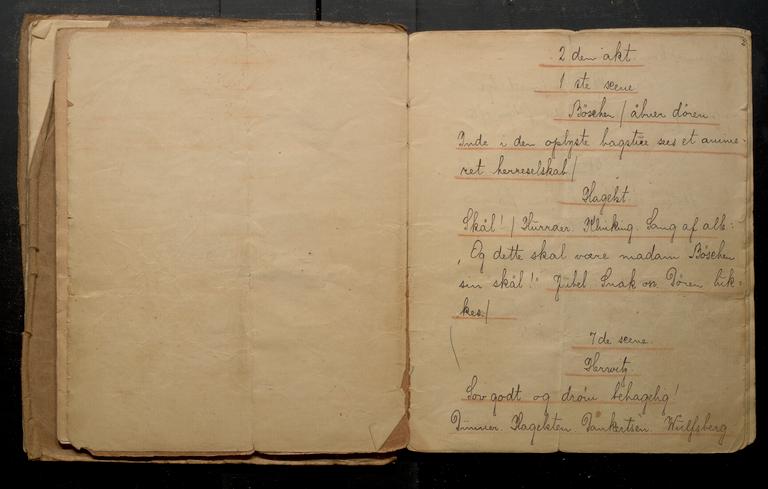 2 den akt.
1 ste scene
Böschen / åbner døren.
Inde i den oplyste bagstue sees et anime-
ret herreselskab /
Hagelst
Skål! / Hurraer. Klinking. Sang af alle:
„Og dette skal være madam Böschen
sin skål!“ Jubel. Snak osv. Døren luk-
kes. /
7 de scene.
Herwitz.
Sov godt og drøm behagelig!
Dünner. Hagelsten. Dankertsen. Wulfsberg